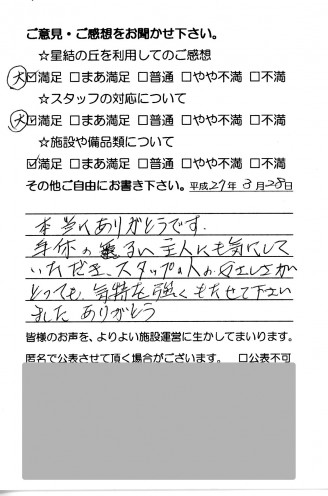 ご意見・ご感想をお聞かせ下さい。
☆星結の丘を利用してのご感想
大 ☑満足 □まあ満足 □普通 □やや不満 □不満
☆スタッフの対応について
大 ☑満足 □まあ満足 □普通 □やや不満 □不満
☆施設や備品類について
☑満足 □まあ満足 □普通 □やや不満 □不満
その他ご自由にお書き下さい。平成27年3月28日
本当にありがとうです.
身体の悪るい主人にも気にして
いただき、スタッフの人の やさしさが
とっても、気持を強くもたせて下さい
ました ありがとう
皆様のお声を、よりよい施設運営に生かしてまいります。
匿名で公表させて頂く場合がございます。 □公表不可